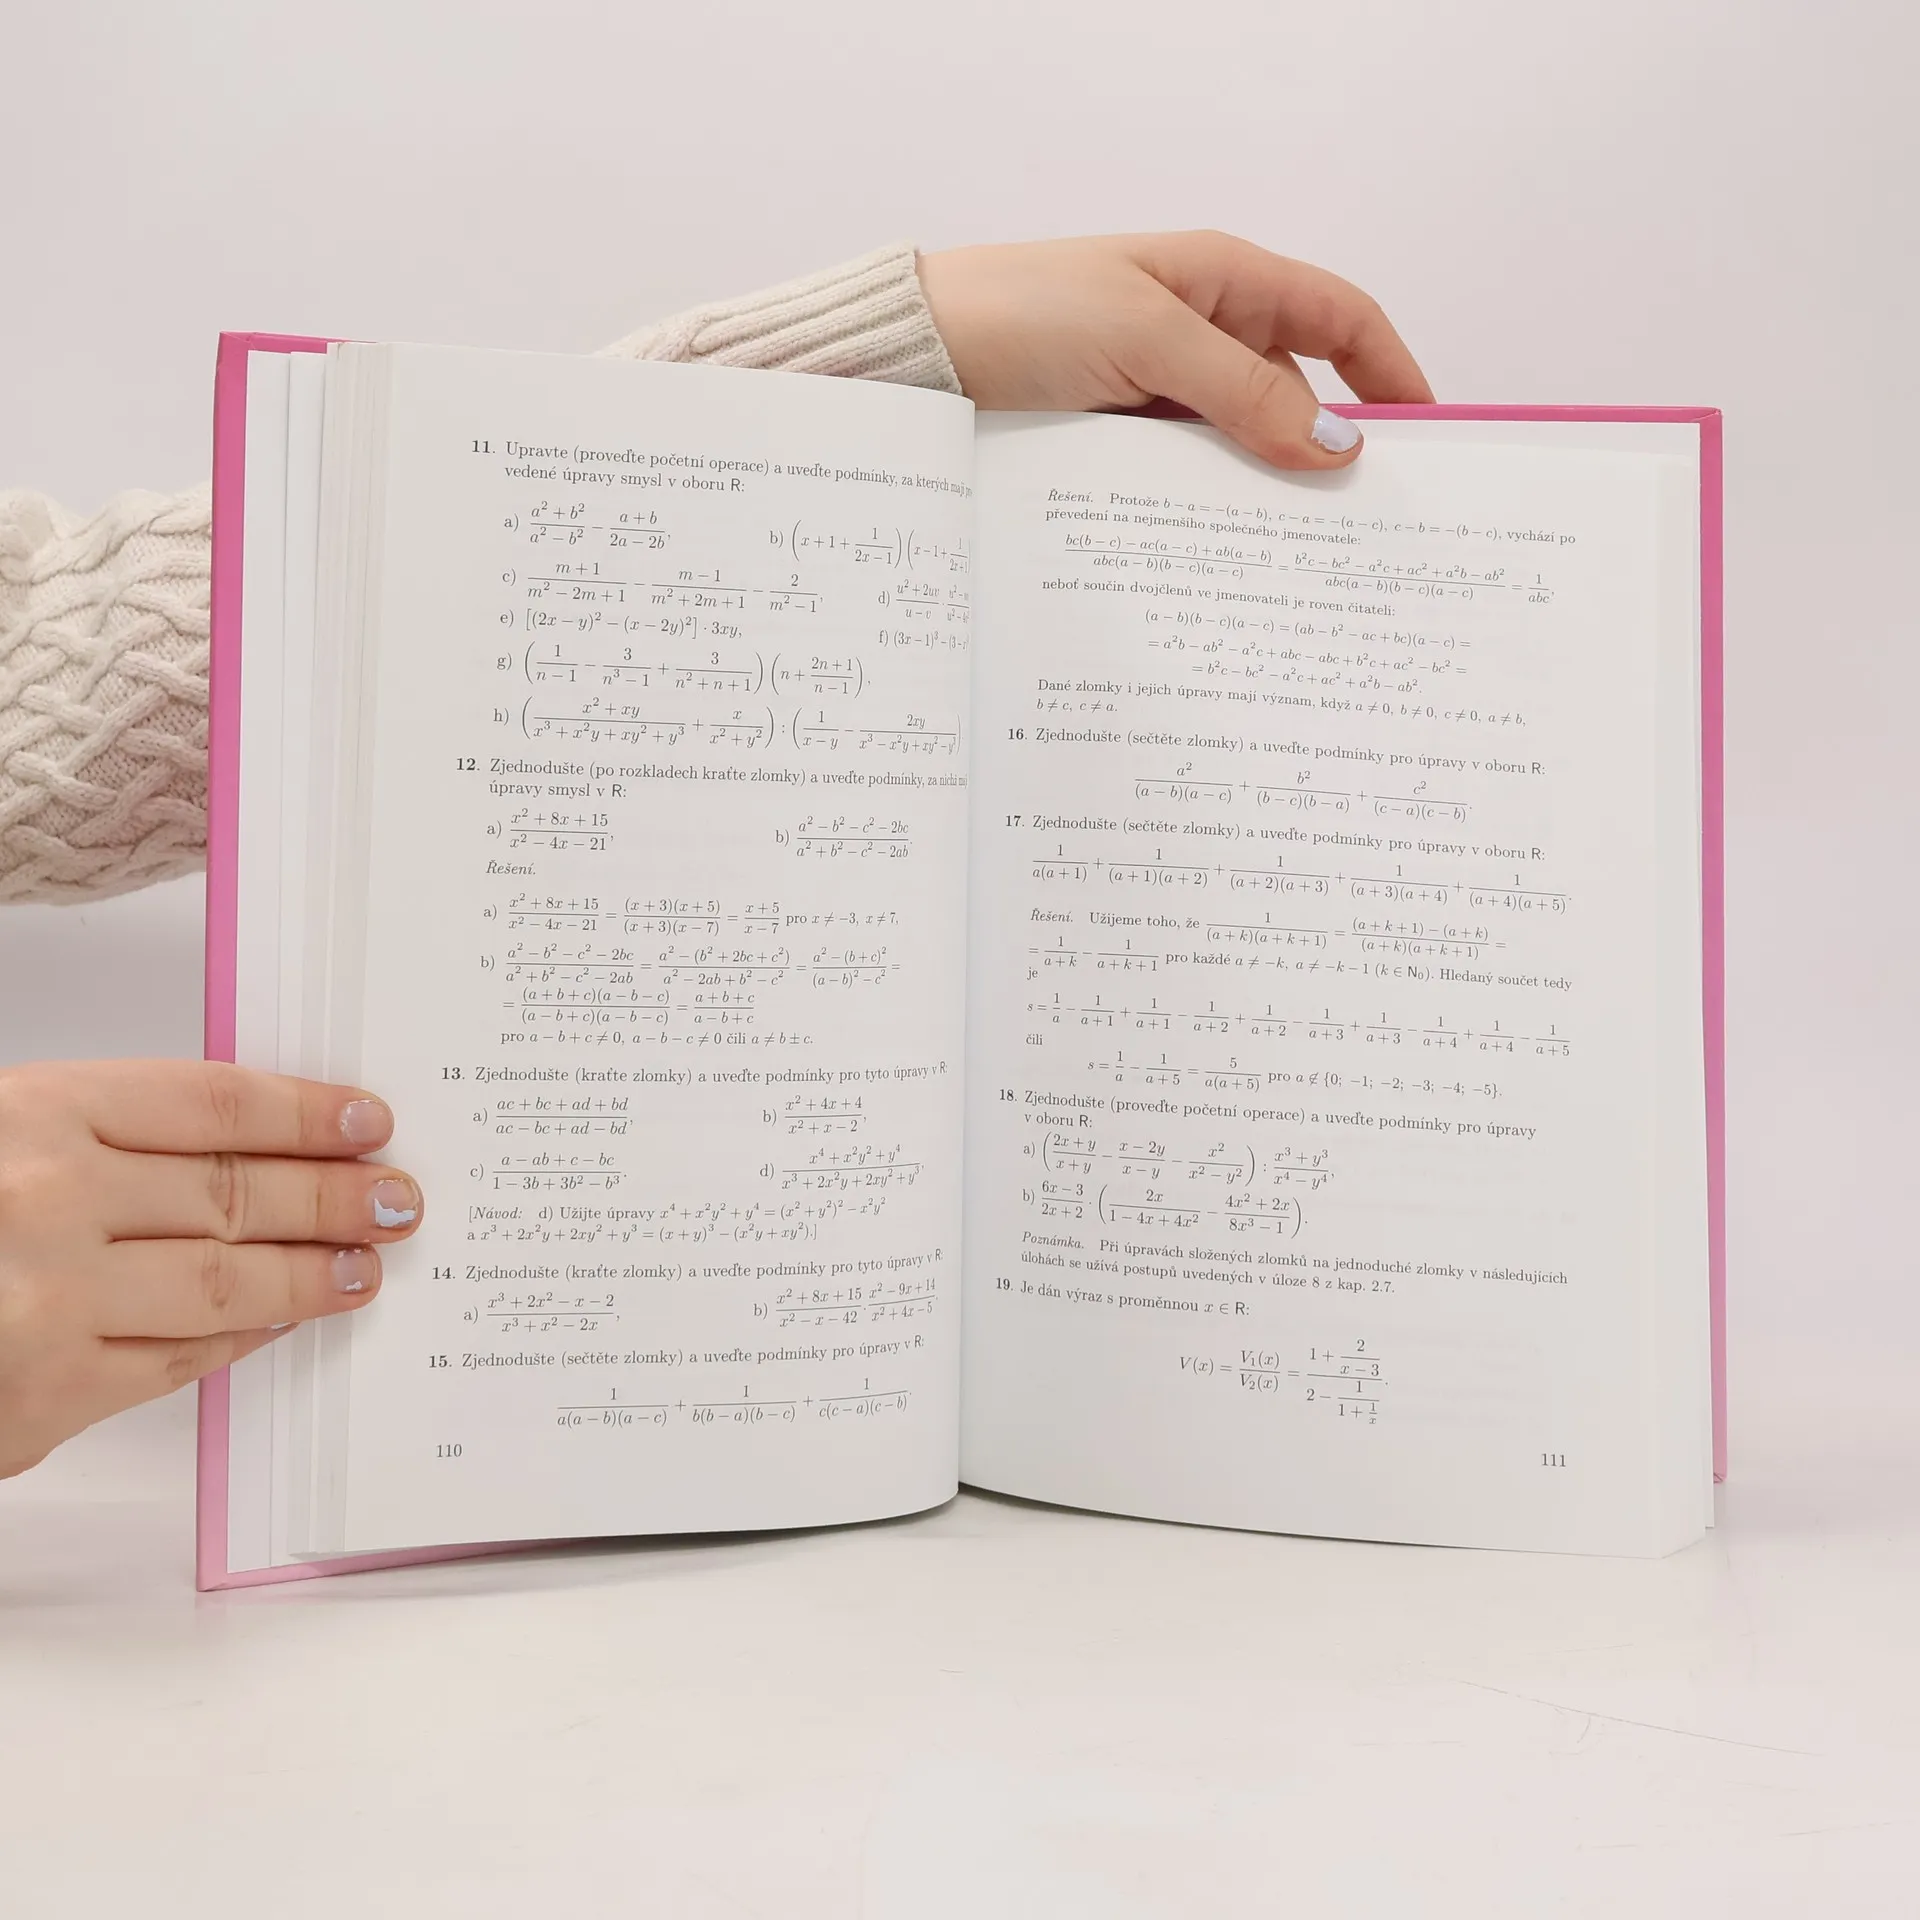 11. Upravte (proveďte početní operace) a uveďte podmínky, za kterých mají
vedené úpravy smysl v oboru R:
a) \frac{a^2 + b^2}{a^2 - b^2} - \frac{a + b}{2a - 2b}, b) (x + 1 + \frac{1}{2x - 1})(x - 1 + \frac{1}{2x + 1}
c) \frac{m + 1}{m^2 - 2m + 1} - \frac{m - 1}{m^2 + 2m + 1} - \frac{2}{m^2 - 1}, d) \frac{u^2 + 2uv}{u - v} ·
e) [(2x - y)^2 - (x - 2y)^2] · 3xy, f) (3x - 1)^3 - (3 -
g) (\frac{1}{n - 1} - \frac{3}{n^3 - 1} + \frac{3}{n^2 + n + 1})(n + \frac{2n + 1}{n - 1}),
h) (\frac{x^2 + xy}{x^3 + x^2y + xy^2 + y^3} + \frac{x}{x^2 + y^2}) : (\frac{1}{x - y} - \frac{2xy}{x^3 - x^2y + xy^2 - y^3})
12. Zjednodušte (po rozkladech kraťte zlomky) a uveďte podmínky, za nichž
úpravy smysl v R:
a) \frac{x^2 + 8x + 15}{x^2 - 4x - 21}, b) \frac{a^2 - b^2 - c^2 - 2bc}{a^2 + b^2 - c^2 - 2ab}.
Řešení.
a) \frac{x^2 + 8x + 15}{x^2 - 4x - 21} = \frac{(x + 3)(x + 5)}{(x + 3)(x - 7)} = \frac{x + 5}{x - 7} pro x ≠ -3, x ≠ 7,
b) \frac{a^2 - b^2 - c^2 - 2bc}{a^2 + b^2 - c^2 - 2ab} = \frac{a^2 - (b^2 + 2bc + c^2)}{a^2 - 2ab + b^2 - c^2} = \frac{a^2 - (b + c)^2}{(a - b)^2 - c^2} =
= \frac{(a + b + c)(a - b - c)}{(a - b + c)(a - b - c)} = \frac{a + b + c}{a - b + c}
pro a - b + c ≠ 0, a - b - c ≠ 0 čili a ≠ b ± c.
13. Zjednodušte (kraťte zlomky) a uveďte podmínky pro tyto úpravy v R:
a) \frac{ac + bc + ad + bd}{ac - bc + ad - bd}, b) \frac{x^2 + 4x + 4}{x^2 + x - 2},
c) \frac{a - ab + c - bc}{1 - 3b + 3b^2 - b^3}. d) \frac{x^4 + x^2y^2 + y^4}{x^3 + 2x^2y + 2xy^2 + y^3}.
[Návod: d) Užijte úpravy x^4 + x^2y^2 + y^4 = (x^2 + y^2)^2 - x^2y^2
a x^3 + 2x^2y + 2xy^2 + y^3 = (x + y)^3 - (x^2y + xy^2).]
14. Zjednodušte (kraťte zlomky) a uveďte podmínky pro tyto úpravy v R:
a) \frac{x^3 + 2x^2 - x - 2}{x^3 + x^2 - 2x}, b) \frac{x^2 + 8x + 15}{x^2 - x - 42} · \frac{x^2 - 9x + 14}{x^2 + 4x - 5}.
15. Zjednodušte (sečtěte zlomky) a uveďte podmínky pro úpravy v R:
\frac{1}{a(a - b)(a - c)} + \frac{1}{b(b - a)(b - c)} + \frac{1}{c(c - a)(c - b)}.
110
Řešení. Protože b - a = -(a - b), c - a = -(a - c), c - b = -(b - c), vychází po
převedení na nejmenšího společného jmenovatele:
\frac{bc(b - c) - ac(a - c) + ab(a - b)}{abc(a - b)(b - c)(a - c)} = \frac{b^2c - bc^2 - a^2c + ac^2 + a^2b - ab^2}{abc(a - b)(b - c)(a - c)} = \frac{1}{abc},
neboť součin dvojčlenů ve jmenovateli je roven čitateli:
(a - b)(b - c)(a - c) = (ab - b^2 - ac + bc)(a - c) =
= a^2b - ab^2 - a^2c + abc - abc + b^2c + ac^2 - bc^2 =
= b^2c - bc^2 - a^2c + ac^2 + a^2b - ab^2.
Dané zlomky i jejich úpravy mají význam, když a ≠ 0, b ≠ 0, c ≠ 0, a ≠ b,
b ≠ c, c ≠ a.
16. Zjednodušte (sečtěte zlomky) a uveďte podmínky pro úpravy v oboru R:
\frac{a^2}{(a - b)(a - c)} + \frac{b^2}{(b - c)(b - a)} + \frac{c^2}{(c - a)(c - b)}.
17. Zjednodušte (sečtěte zlomky) a uveďte podmínky pro úpravy v oboru R:
\frac{1}{a(a + 1)} + \frac{1}{(a + 1)(a + 2)} + \frac{1}{(a + 2)(a + 3)} + \frac{1}{(a + 3)(a + 4)} + \frac{1}{(a + 4)(a + 5)}.
Řešení. Užijeme toho, že \frac{1}{(a + k)(a + k + 1)} = \frac{(a + k + 1) - (a + k)}{(a + k)(a + k + 1)} =
= \frac{1}{a + k} - \frac{1}{a + k + 1} pro každé a ≠ -k, a ≠ -k - 1 (k ∈ N_0). Hledaný součet tedy
je
s = \frac{1}{a} - \frac{1}{a + 1} + \frac{1}{a + 1} - \frac{1}{a + 2} + \frac{1}{a + 2} - \frac{1}{a + 3} + \frac{1}{a + 3} - \frac{1}{a + 4} + \frac{1}{a + 4} - \frac{1}{a + 5}
čili
s = \frac{1}{a} - \frac{1}{a + 5} = \frac{5}{a(a + 5)} pro a ∉ {0; -1; -2; -3; -4; -5}.
18. Zjednodušte (proveďte početní operace) a uveďte podmínky pro úpravy
v oboru R:
a) (\frac{2x + y}{x + y} - \frac{x - 2y}{x - y} - \frac{x^2}{x^2 - y^2}) : \frac{x^3 + y^3}{x^4 - y^4},
b) \frac{6x - 3}{2x + 2} · (\frac{2x}{1 - 4x + 4x^2} - \frac{4x^2 + 2x}{8x^3 - 1}).
Poznámka. Při úpravách složených zlomků na jednoduché zlomky v následujících
úlohách se užívá postupů uvedených v úloze 8 z kap. 2.7.
19. Je dán výraz s proměnnou x ∈ R:
V(x) = \frac{V_1(x)}{V_2(x)} = \frac{1 + \frac{2}{x - 3}}{2 - \frac{1}{1 + \frac{1}{x}}}.
111